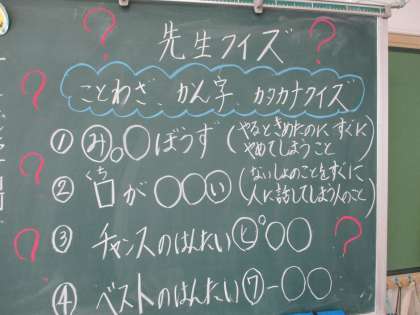 先生クイズ
ことわざ、かん字、カタカナクイズ
① み。○ぼうず(やるときめたのに、すぐにやめてしまうこと)
② 口くちが○○い(ないしょのことをすぐに、人に話してしまう人のこと)
③ チャンスのはんたい ピ○○
④ ベストのはんたい ワー○○